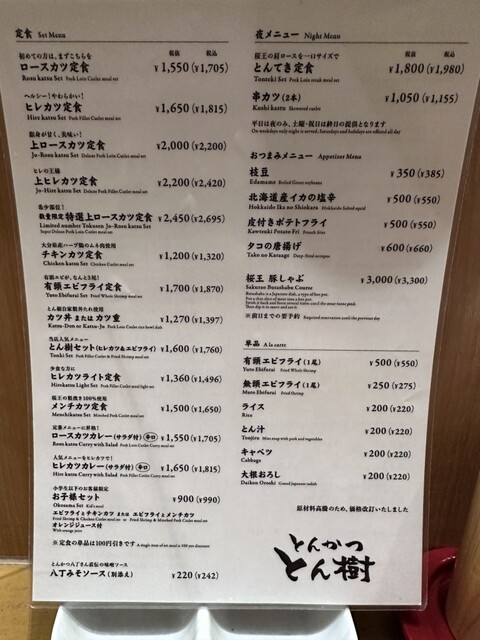 定食 Set Menu
税抜 税込
初めての方は、まずこちらを
ロースカツ定食 ¥1,550(¥1,705)
Rosu katsu Set Pork Loin Cutlet meal set
ヘルシー!やわらかい!
ヒレカツ定食 ¥1,650(¥1,815)
Hire katsu Set Pork Fillet Cutlet meal set
脂身が甘く、美味い!
上ロースカツ定食 ¥2,000(¥2,200)
Jo-Rosu katsu Set Deluxe Pork Loin Cutlet meal set
ヒレの王様
上ヒレカツ定食 ¥2,200(¥2,420)
Jo-Hire katsu Set Deluxe Pork Fillet Cutlet meal set
希少部位!
数量限定特選上ロースカツ定食 ¥2,450(¥2,695)
Limited number Tokusen Jo-Rosu katsu Set
Super Deluxe Pork Loin Cutlet meal set
大分県産ハーブ鶏のムネ肉使用
チキンカツ定食 ¥1,200(¥1,320)
Chicken katsu Set Chicken Cutlet meal set
有頭エビが、なんと3尾!
有頭エビフライ定食 ¥1,700(¥1,870)
Yuto Ebifurai Set Fried Whole Shrimp meal set
とん樹自家製丼たれ使用
カツ丼 または カツ重 ¥1,270(¥1,397)
Katsu-Don or Katsu-Ju Pork Loin Cutlet rice bowl dish
当店人気メニュー
とん樹セット(ヒレカツ&エビフライ) ¥1,600(¥1,760)
Tonki Set Pork Fillet Cutlet & Fried Shrimp meal set
少食な方に
ヒレカツライト定食 ¥1,360(¥1,496)
Hirekatsu Light Set Pork Fillet Cutlet meal light set
桜王の粗挽き100%使用
メンチカツ定食 ¥1,500(¥1,650)
Menchikatsu Set Minched Pork Cutlet meal set
定番メニューに昇格!
ロースカツカレー(サラダ付) 辛口 ¥1,550(¥1,705)
Rosu katsu Curry with Salad Pork Loin Cutlet Curry with Salad
人気メニューをヒレカツで!
ヒレカツカレー(サラダ付) 辛口 ¥1,650(¥1,815)
Hire katsu Curry with Salad Pork Fillet Cutlet Curry with Salad
小学生以下のお客様限定
お子様セット ¥900(¥990)
Okosama Set Kid's meal
エビフライとチキンカツ または エビフライとメンチカツ
Fried Shrimp & Chicken Cutlet meal set or Fried Shrimp & Minched Pork Cutlet meal set
オレンジジュース付
With orange juice
※定食の単品は100円引きです A single item of set meal is 100 yen discount
とんかつ八丁さん直伝の味噌ソース
八丁みそソース(別添え) ¥220(¥242)
夜メニュー Night Menu
税抜 税込
桜王の肩ロースを一口サイズで
とんてき定食 ¥1,800(¥1,980)
Tonteki Set Pork Loin steak meal set
串カツ(2本) ¥1,050(¥1,155)
Kushi katsu Skewered cutlet
平日は夜のみ、土曜・祝日は終日の提供となります
On weekdays only night is served, Saturdays and holidays are offered all day
おつまみメニュー Appetizer Menu
枝豆 ¥350(¥385)
Edamame Boiled Green soybeans
北海道産イカの塩辛 ¥500(¥550)
Hokkaido Ika no Shiokara Hokkaido Salted squid
皮付きポテトフライ ¥500(¥550)
Kawtsuki Potato Fri French fries
タコの唐揚げ ¥600(¥660)
Tako no Karaage Deep-fried octopus
桜王 豚しゃぶ ¥3,000(¥3,300)
Sakuraо Butashabu Course
※前日までの要予約 Required reservation until the previous day
単品 A la carte
有頭エビフライ(1尾) ¥500(¥550)
Yuto Ebifurai Fried Whole Shrimp
無頭エビフライ(1尾) ¥250(¥275)
Muto Ebifurai Fried Shrimp
ライス ¥200(¥220)
Rice
とん汁 ¥200(¥220)
Tonjiru Miso soup with pork and vegetables
キャベツ ¥200(¥220)
Cabbage
大根おろし ¥200(¥220)
Daikon Oroshi Grated Japanese radish
原材料高騰のため、価格改訂いたしました
とんかつ
とん樹